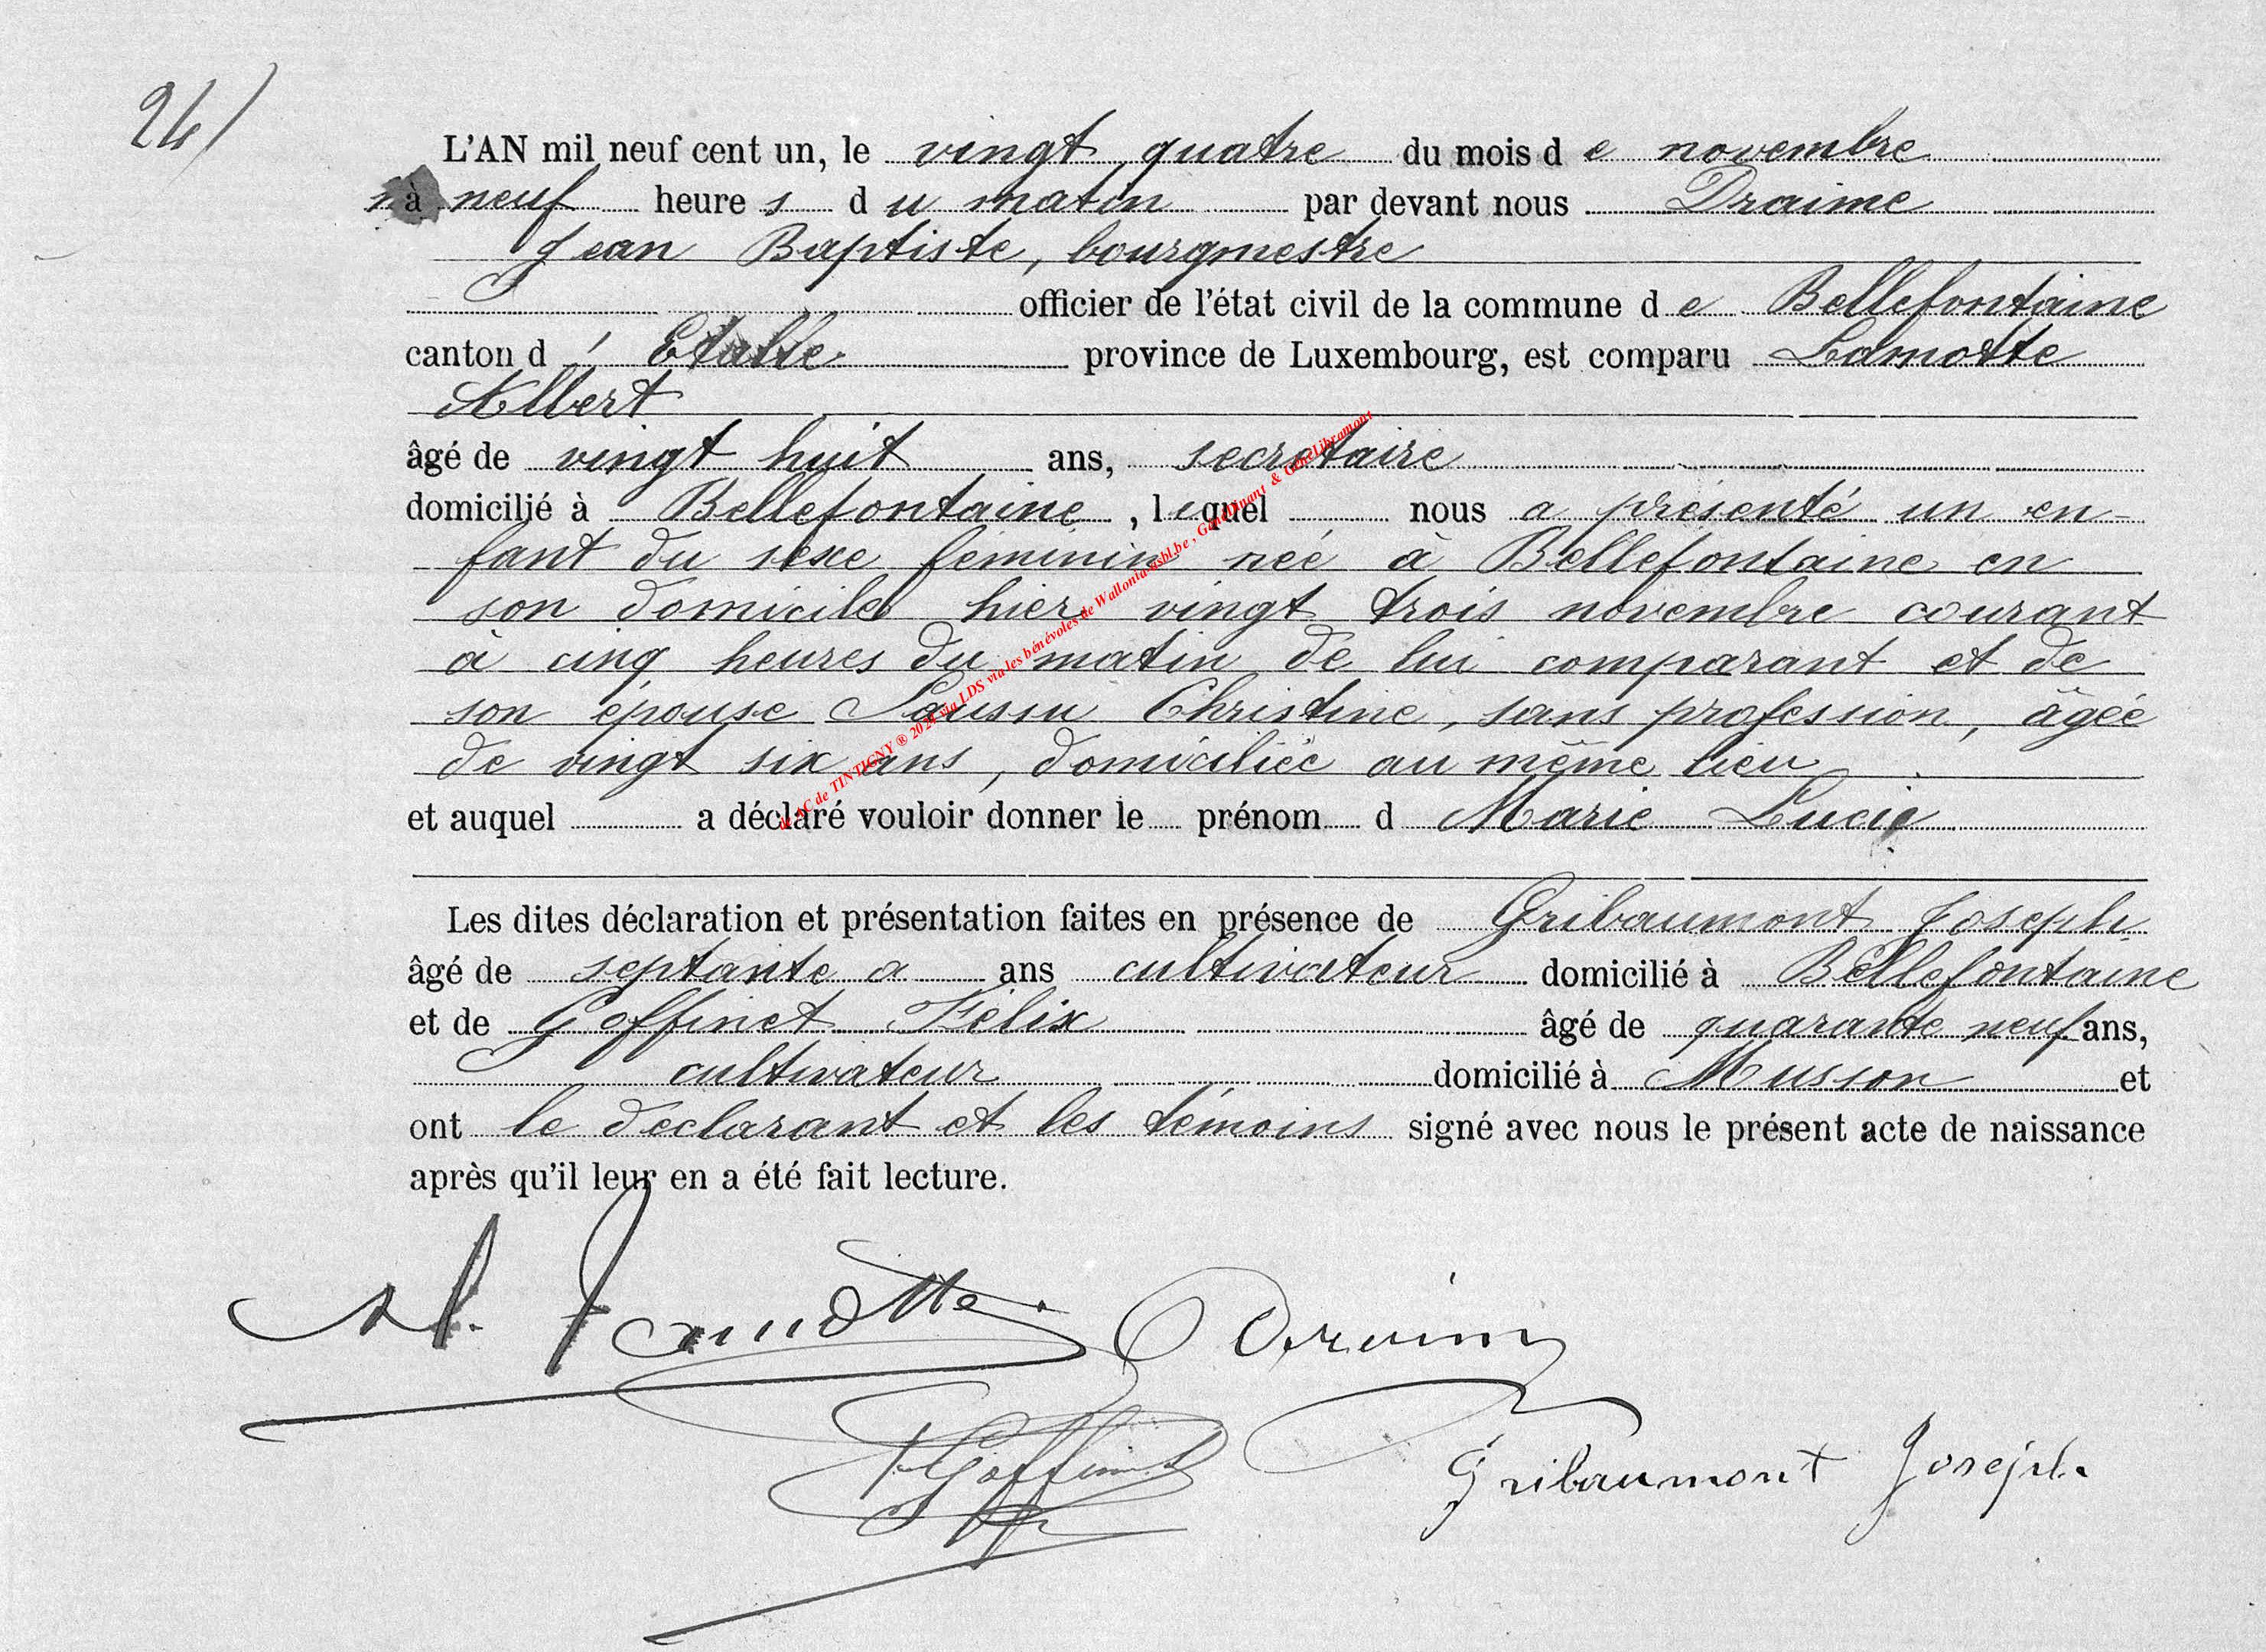 24/
L'AN mil neuf cent un, le vingt quatre du mois de novembre
à neuf heures du matin par devant nous Draime
Jean Baptiste, bourgmestre
officier de l'état civil de la commune de Bellefontaine
canton d' Etalle province de Luxembourg, est comparu Lamotte
Albert
âgé de vingt huit ans, secretaire
domicilié à Bellefontaine, lequel nous a présenté un en-
fant du sexe féminin née à Bellefontaine en
son domicile hier vingt trois novembre courant
à cinq heures du matin de lui comparant et de
son épouse Saussu Christine, sans profession, âgée
de vingt six ans, domiciliée au même lieu
et auquel a déclaré vouloir donner le prénom d Marie Lucie
Les dites déclaration et présentation faites en présence de Gribaumont Joseph
âgé de septante a ans cultivateur domicilié à Bellefontaine
et de Goffinet Félix âgé de quarante neuf ans,
cultivateur domicilié à Musson et
ont le déclarant et les témoins signé avec nous le présent acte de naissance
après qu'il leur en a été fait lecture.
A. Lamotte
Goffinet
Gribaumont Joseph
de AC de TINTIGNY ® 2024 via LDS via les bénévoles de Wallonia asbl.be, GénéDinant & GénéLibramont